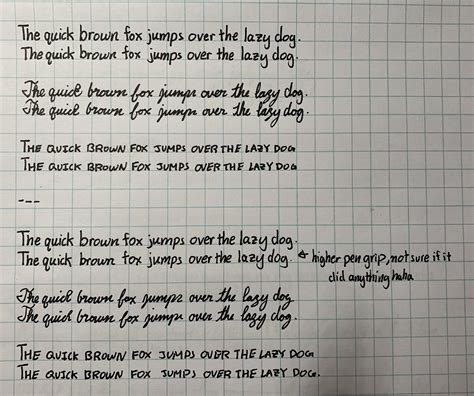 The quick brown fox jumps over the lazy dog.
The quick brown fox jumps over the lazy dog.
The quick brown fox jumps over the lazy dog.
The quick brown fox jumps over the lazy dog.
THE QUICK BROWN FOX JUMPS OVER THE LAZY DOG
THE QUICK BROWN FOX JUMPS OVER THE LAZY DOG
---
The quick brown fox jumps over the lazy dog.
The quick brown fox jumps over the lazy dog. ← higher pen grip, not sure if it
did anything haha
The quick brown fox jumps over the lazy dog.
The quick brown fox jumps over the lazy dog.
THE QUICK BROWN FOX JUMPS OVER THE LAZY DOG
THE QUICK BROWN FOX JUMPS OVER THE LAZY DOG.